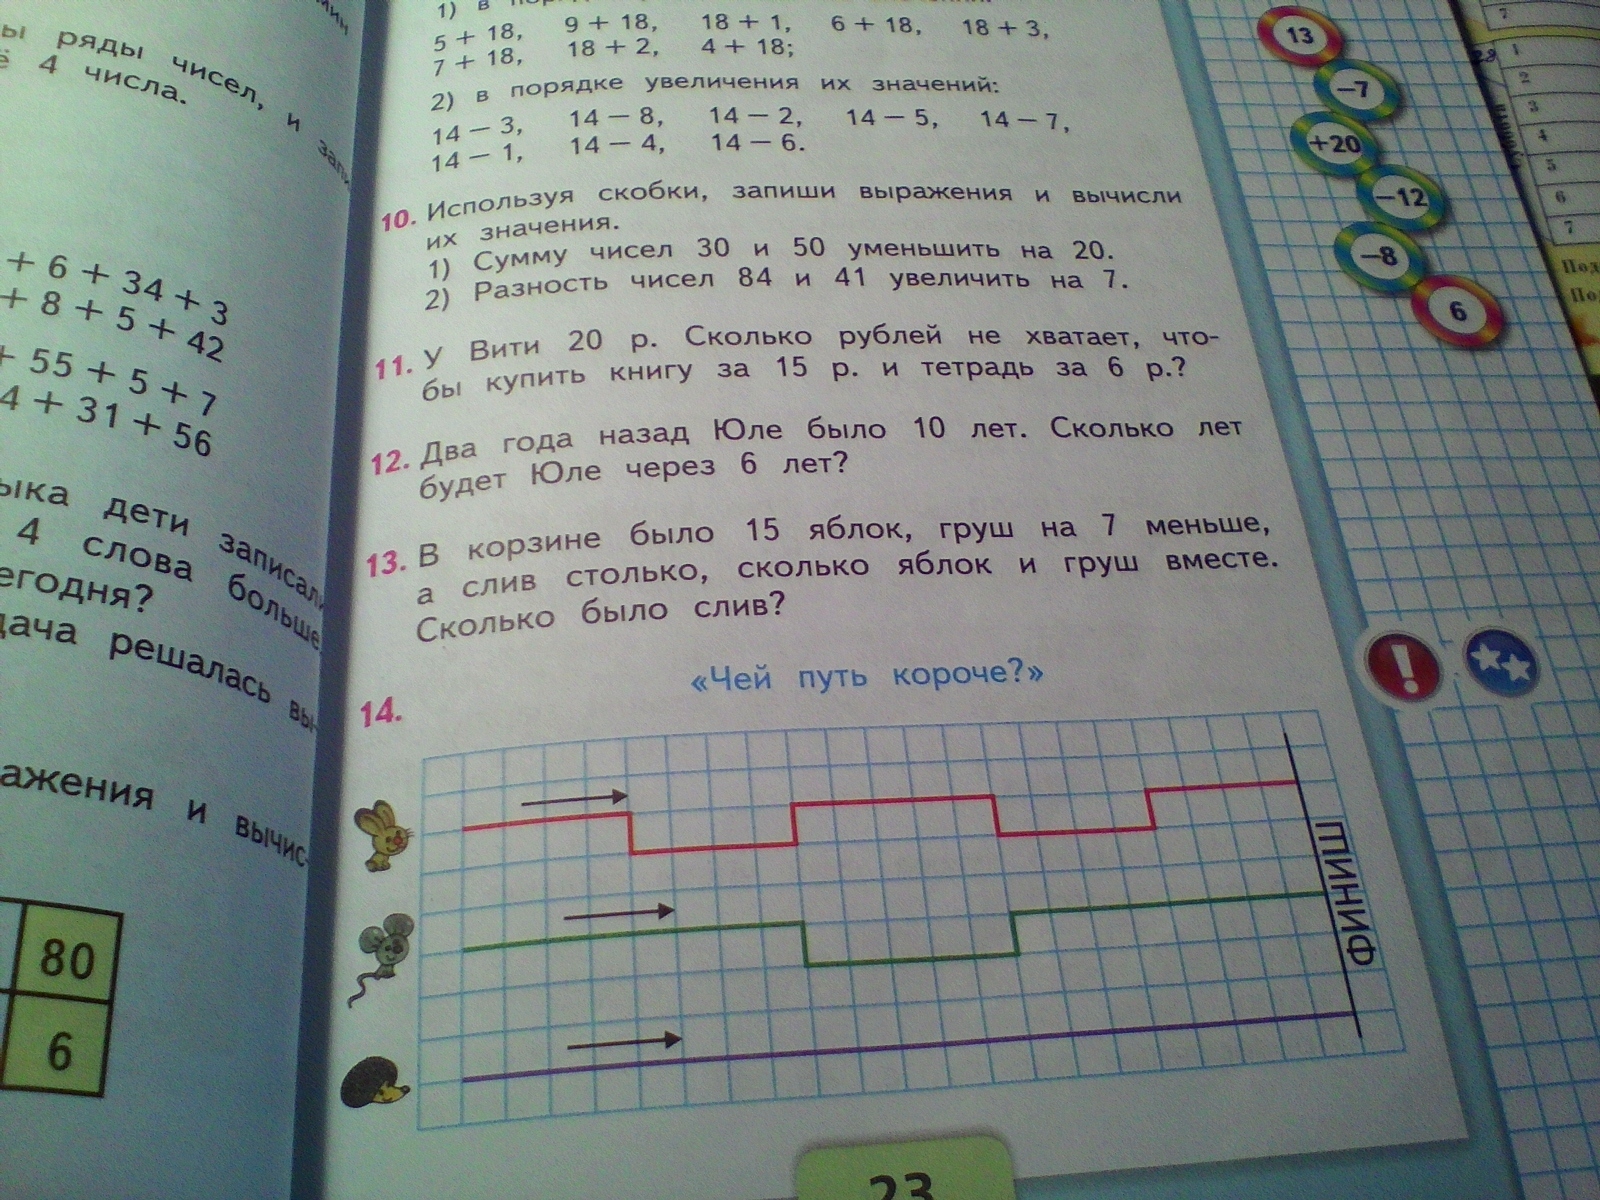 ряды чисел, и
4 числа.
+ 6 + 34 + 3
+ 8 + 5 + 42
+ 55 + 5 + 7
4 + 31 + 56
дети записали
4 слова больше,
решалась вы-
и вычис-
80
6
1) в
5 + 18, 9 + 18, 18 + 1, 6 + 18, 18 + 3,
7 + 18, 18 + 2, 4 + 18;
2) в порядке увеличения их значений:
14 − 3, 14 − 8, 14 − 2, 14 − 5, 14 − 7,
14 − 1, 14 − 4, 14 − 6.
10. Используя скобки, запиши выражения и вычисли
их значения.
1) Сумму чисел 30 и 50 уменьшить на 20.
2) Разность чисел 84 и 41 увеличить на 7.
11. У Вити 20 р. Сколько рублей не хватает, что-
бы купить книгу за 15 р. и тетрадь за 6 р.?
12. Два года назад Юле было 10 лет. Сколько лет
будет Юле через 6 лет?
13. В корзине было 15 яблок, груш на 7 меньше,
а слив столько, сколько яблок и груш вместе.
Сколько было слив?
«Чей путь короче?»
14.
ФИНИШ
23
13
−7
+20
−12
−8
6
!
7
1
2
3
4
5
6
7